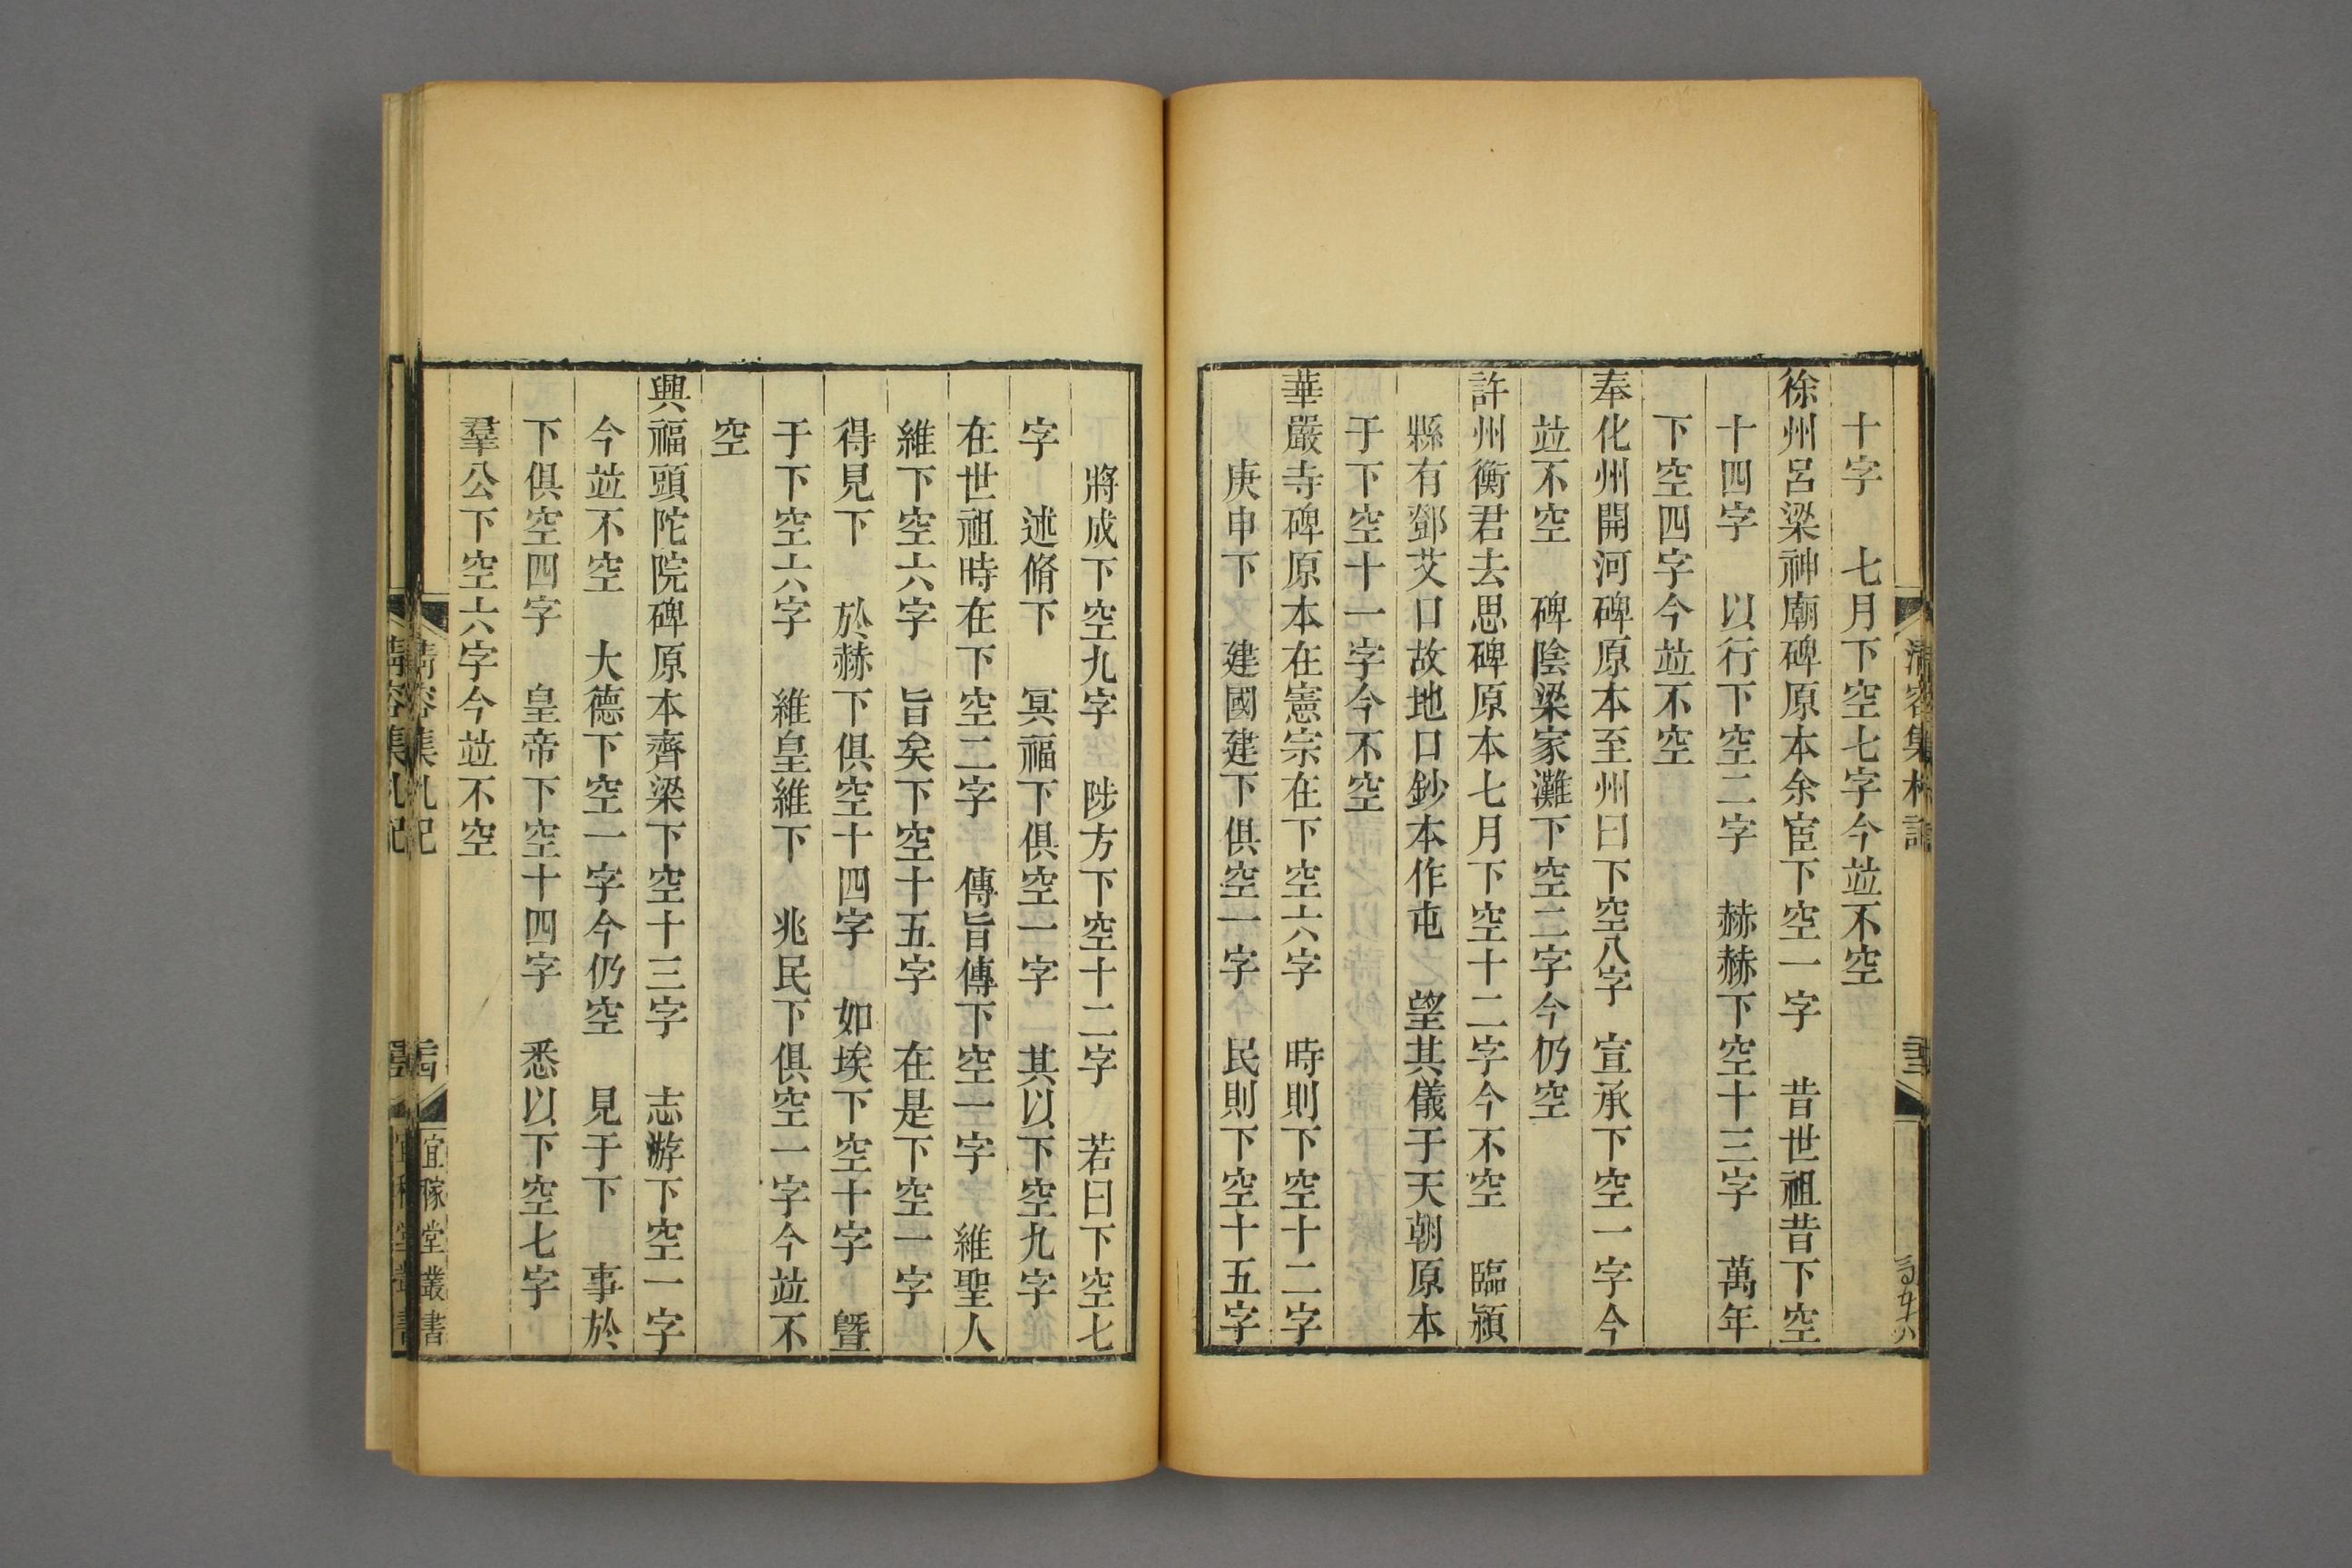 十字　七月下空七字今竝不空
徐州呂梁神廟碑原本余宦下空一字　昔世祖昔下空
十四字　以行下空二字　赫赫下空十三字　萬年
下空四字今竝不空
奉化州開河碑原本至州曰下空八字　宣承下空一字今
竝不空　碑陰梁家灘下空二字今仍空
許州衡君去思碑原本七月下空十二字今不空　臨潁
縣有鄧艾口故地口鈔本作屯　望其儀于天朝原本
于下空十一字今不空
華嚴寺碑原本在憲宗在下空六字　時則下空十二字
庚申下　建國建下俱空一字　民則下空十五字
將成下空九字　陟方下空十二字　若曰下空七
字　述脩下　冥福下俱空一字　其以下空九字
在世祖時在下空二字　傳旨傳下空一字　維聖人
維下空六字　旨矣下空十五字　在是下空一字
得見下　於赫下俱空十四字　如埃下空十字　曁
于下空六字　維皇維下　兆民下俱空一字今竝不
空
興福頭陀院碑原本齊梁下空十三字　志游下空一字
今竝不空　大德下空一字今仍空　見于下　事於
下俱空四字　皇帝下空十四字　悉以下空七字
羣公下空六字今竝不空
清容集札記
宜稼堂叢書